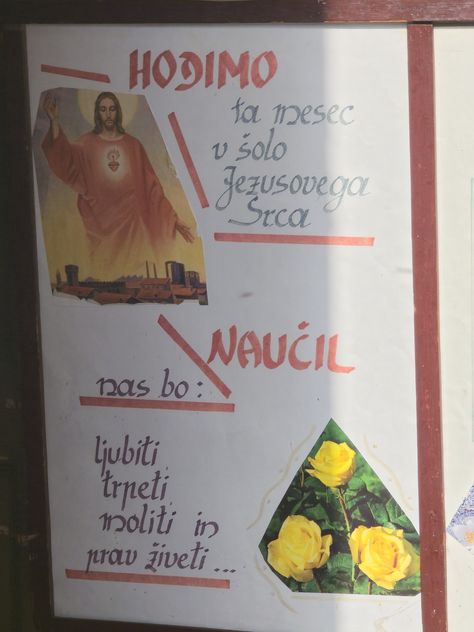 HODIMO
ta mesec
v šolo
Jezusovega
Srca
NAUČIL
nas bo:
ljubiti
trpeti
moliti in
prav živeti...